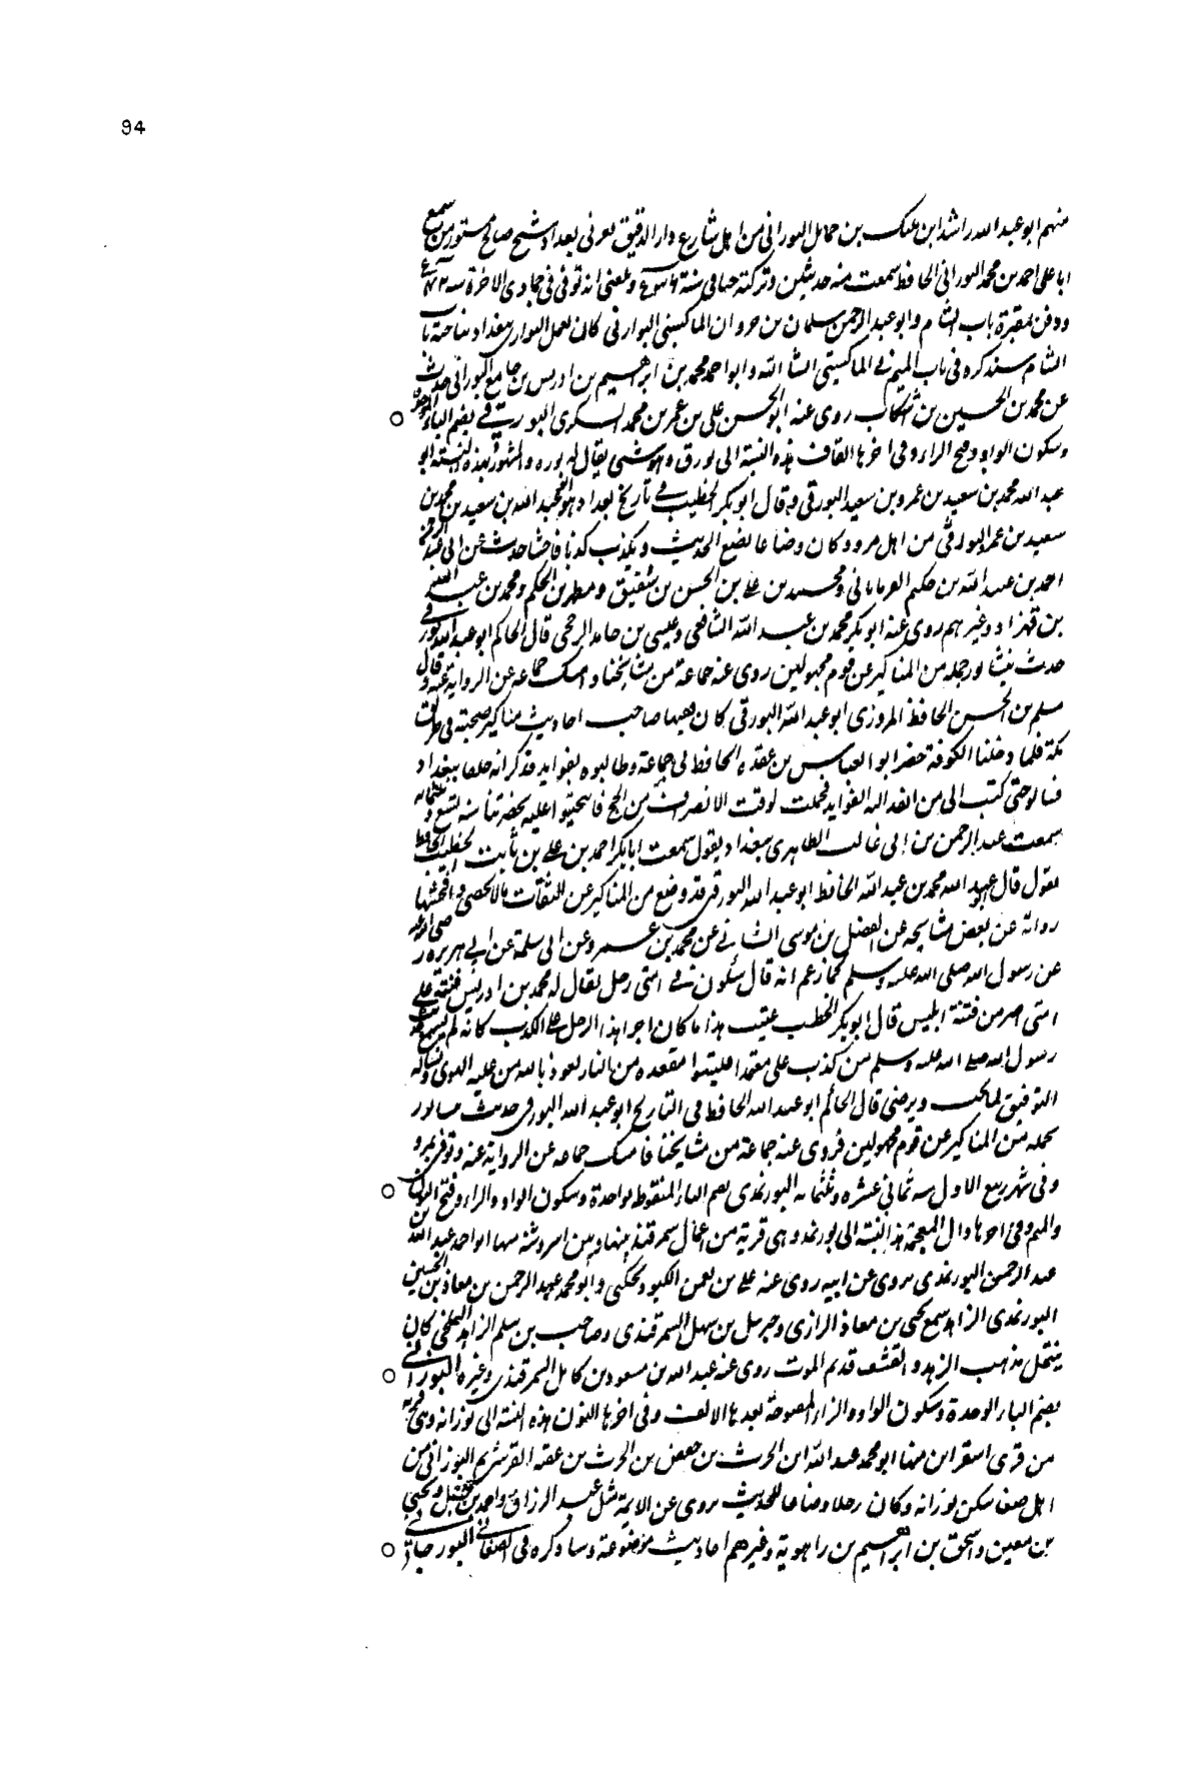 94
منهم ابو عبد الله راشد ابن ملك بن حمائل البوراني من اهل شارع دار الدقيق بغربي بغداد شيخ صالح مستور من سمع
ابا علي احمد بن محمد البوراني الحافظ سمعت منه حديثين وتركته حيا في سنة وبلغني انه توفي في جمادى الاخرة سنة
ودفن بمقبرة باب الشام وابو عبد الرحمن سلمان بن مروان الماكسيني البوراني كان يعمل البواري ببغداد بناحية باب
الشام سنذكره في باب الميم في الماكسيني ان شا الله وابو احمد محمد بن ابرهيم بن ادريس بن جامع البوراني حدث
عن محمد بن الحسين بن روى عنه ابو الحسن علي بن عمر بن محمد السكري البورقي بضم الباء
وسكون الواو وفتح الراء وفي اخرها القاف هذه النسبة الى بورق وهو شي يقال له بوره والمشهور بهذه النسبة ابو
عبد الله محمد بن سعيد بن عمرو بن سعيد البورقي وقال ابو بكر الخطيب في تاريخ بغداد هو محمد بن عبد الله بن سعيد بن محمد بن
سعيد بن عمر البورقي من اهل مرو وكان وضاعا يضع الحديث ويكذب كذبا فاحشا حدث عن ابي عبد الرحمن
احمد بن عبد الله بن حكيم الفرياناني ومحمد بن علي بن الحسن بن شقيق ومطهر بن الحكم ومحمد بن عبد الله
بن قهزاد وغيرهم روى عنه ابو بكر محمد بن عبد الله الشافعي وعيسى بن حامد الرخجي قال الحاكم ابو عبد الله البورقي
حدث بنيسابور بجملة من المناكير عن قوم مجهولين روى عنه جماعة من مشايخنا وامسك جماعة عن الرواية عنه وقال
مسلم بن الحسن الحافظ المروزي ابو عبد الله البورقي كان فقيها صاحب احاديث مناكير صحبته في طريق
مكة فلما دخلنا الكوفة حضر ابو العباس بن عقدة الحافظ في جماعة وطالبوه بفوايد فذكر انه خلفها ببغداد
فسالوه حتى كتب الى من انفذ اليه الفوايد فحملت لوقت الانصراف من الحج فانتخبوا عليه بحضرتنا سنة تسع وثلثمايه
سمعت عبد الرحمن بن ابي غالب الطاهري ببغداد يقول سمعت ابا بكر احمد بن علي بن ثابت الخطيب الحافظ
يقول قال ابو عبد الله محمد بن عبد الله الحافظ ابو عبد الله البورقي قد وضع من المناكير عن الثقات مالا يحصى وافحشها
روايته عن بعض مشايخه عن الفضل بن موسى السيناني عن محمد بن عمرو عن ابي سلمة عن ابي هريرة رضي الله عنه
عن رسول الله صلى الله عليه وسلم كما زعم انه قال سيكون في امتي رجل يقال له محمد بن ادريس فتنته على
امتي اضر من فتنة ابليس قال ابو بكر الخطيب عقيب هذا ما كان اجرا هذا الرجل على الكذب كانه لم يسمع حديث
رسول الله صلى الله عليه وسلم من كذب علي متعمدا فليتبوا مقعده من النار نعوذ بالله من غلبة الهوى ونساله
التوفيق لما يحب ويرضى قال الحاكم ابو عبد الله الحافظ في التاريخ ابو عبد الله البورقي حدث بنيسابور
بجملة من المناكير عن قوم مجهولين فروى عنه جماعة من مشايخنا فامسك جماعة عن الرواية عنه وتوفي بمرو
وفي شهر ربيع الاول سنة ثماني عشره وثلثمايه البورنمذي بضم الباء المنقوطة بواحدة وسكون الواو والراء وفتح النون
والميم وفي اخرها دال المعجمة هذه النسبة الى بورنمذ وهي قرية من اعمال سمرقند بينها وبين اسروشنة منها ابو احمد عبد الله بن
عبد الرحمن البورنمذي يروي عن ابيه روى عنه علي بن نعمن الكبوذنجكثي وابو محمد عبد الرحمن بن معاذ بن الحسين
البورنمذي الزاهد سمع يحيى بن معاذ الرازي وجبرئيل بن سهل السمرقندي وصاحب بن سلم الزاهد البلخي كان
ينتحل مذهب الزهد والتقشف قديم الموت روى عنه عبد الله بن مسعود بن كامل السمرقندي وغيره البوزاني
بضم الباء الموحدة وسكون الواو والزاء المفتوحة بعدها الالف وفي اخرها النون هذه النسبة الى بوزانه وهي قرية
من قرى اسفراين منها ابو محمد عبد الله ابن الحرث بن حفص بن الحرث بن عقبة القرشي البوزاني من
اهل صنعا سكن بوزانه وكان رجلا وضاعا للحديث يروي عن الايمة مثل عبد الرزاق واحمد بن حنبل ويحيى
بن معين واسحق بن ابرهيم بن راهوية وغيرهم احاديث موضوعة وساذكره في الصنعاني البوزجاني